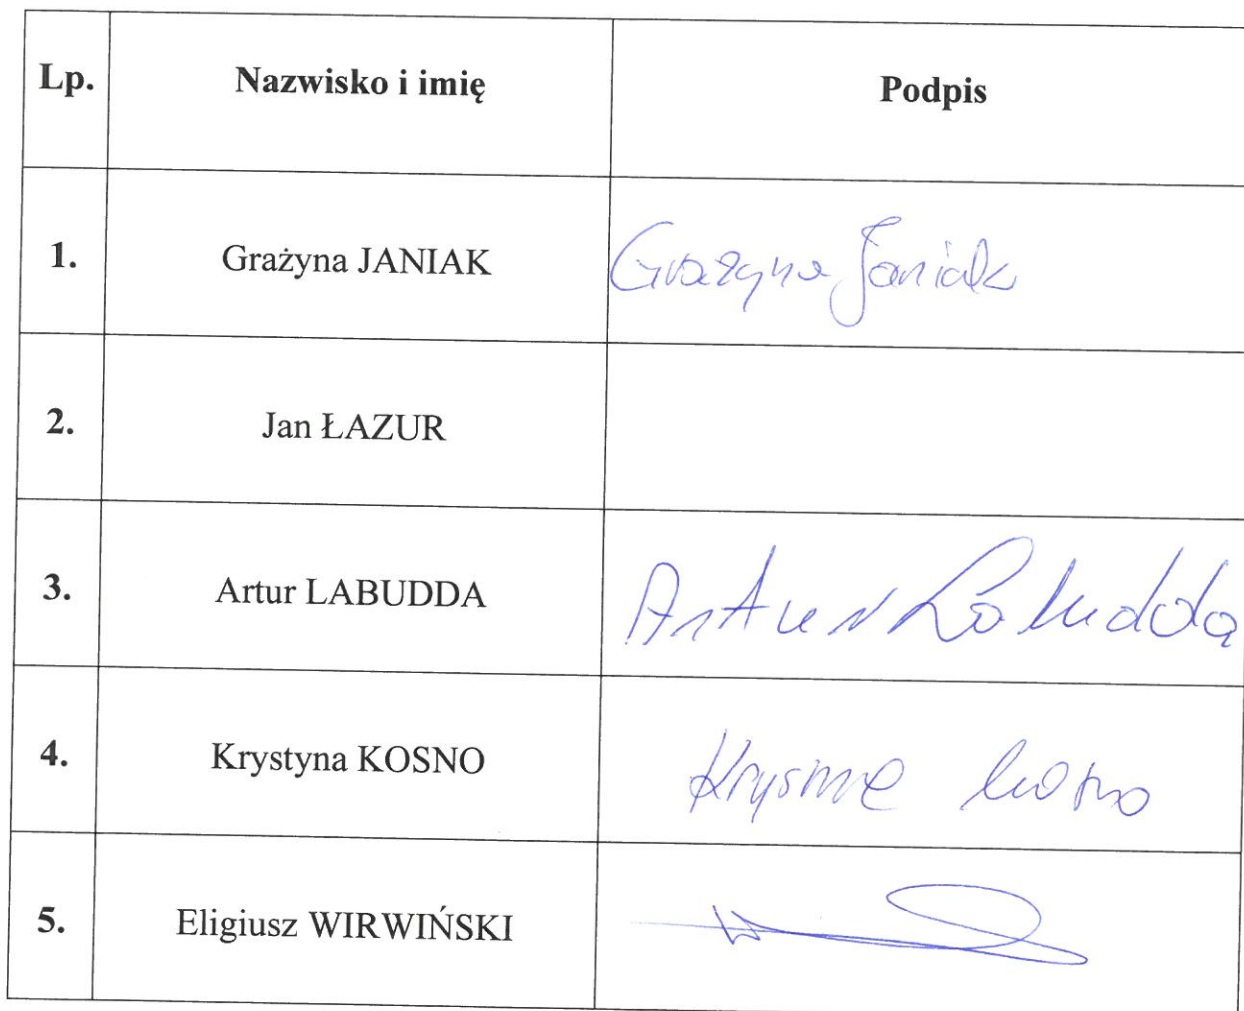 Lp. Nazwisko i imię Podpis
1. Grażyna JANIAK Grażyna Janiak
2. Jan ŁAZUR
3. Artur LABUDDA Artur Labudda
4. Krystyna KOSNO Krystyna Kosno
5. Eligiusz WIRWIŃSKI